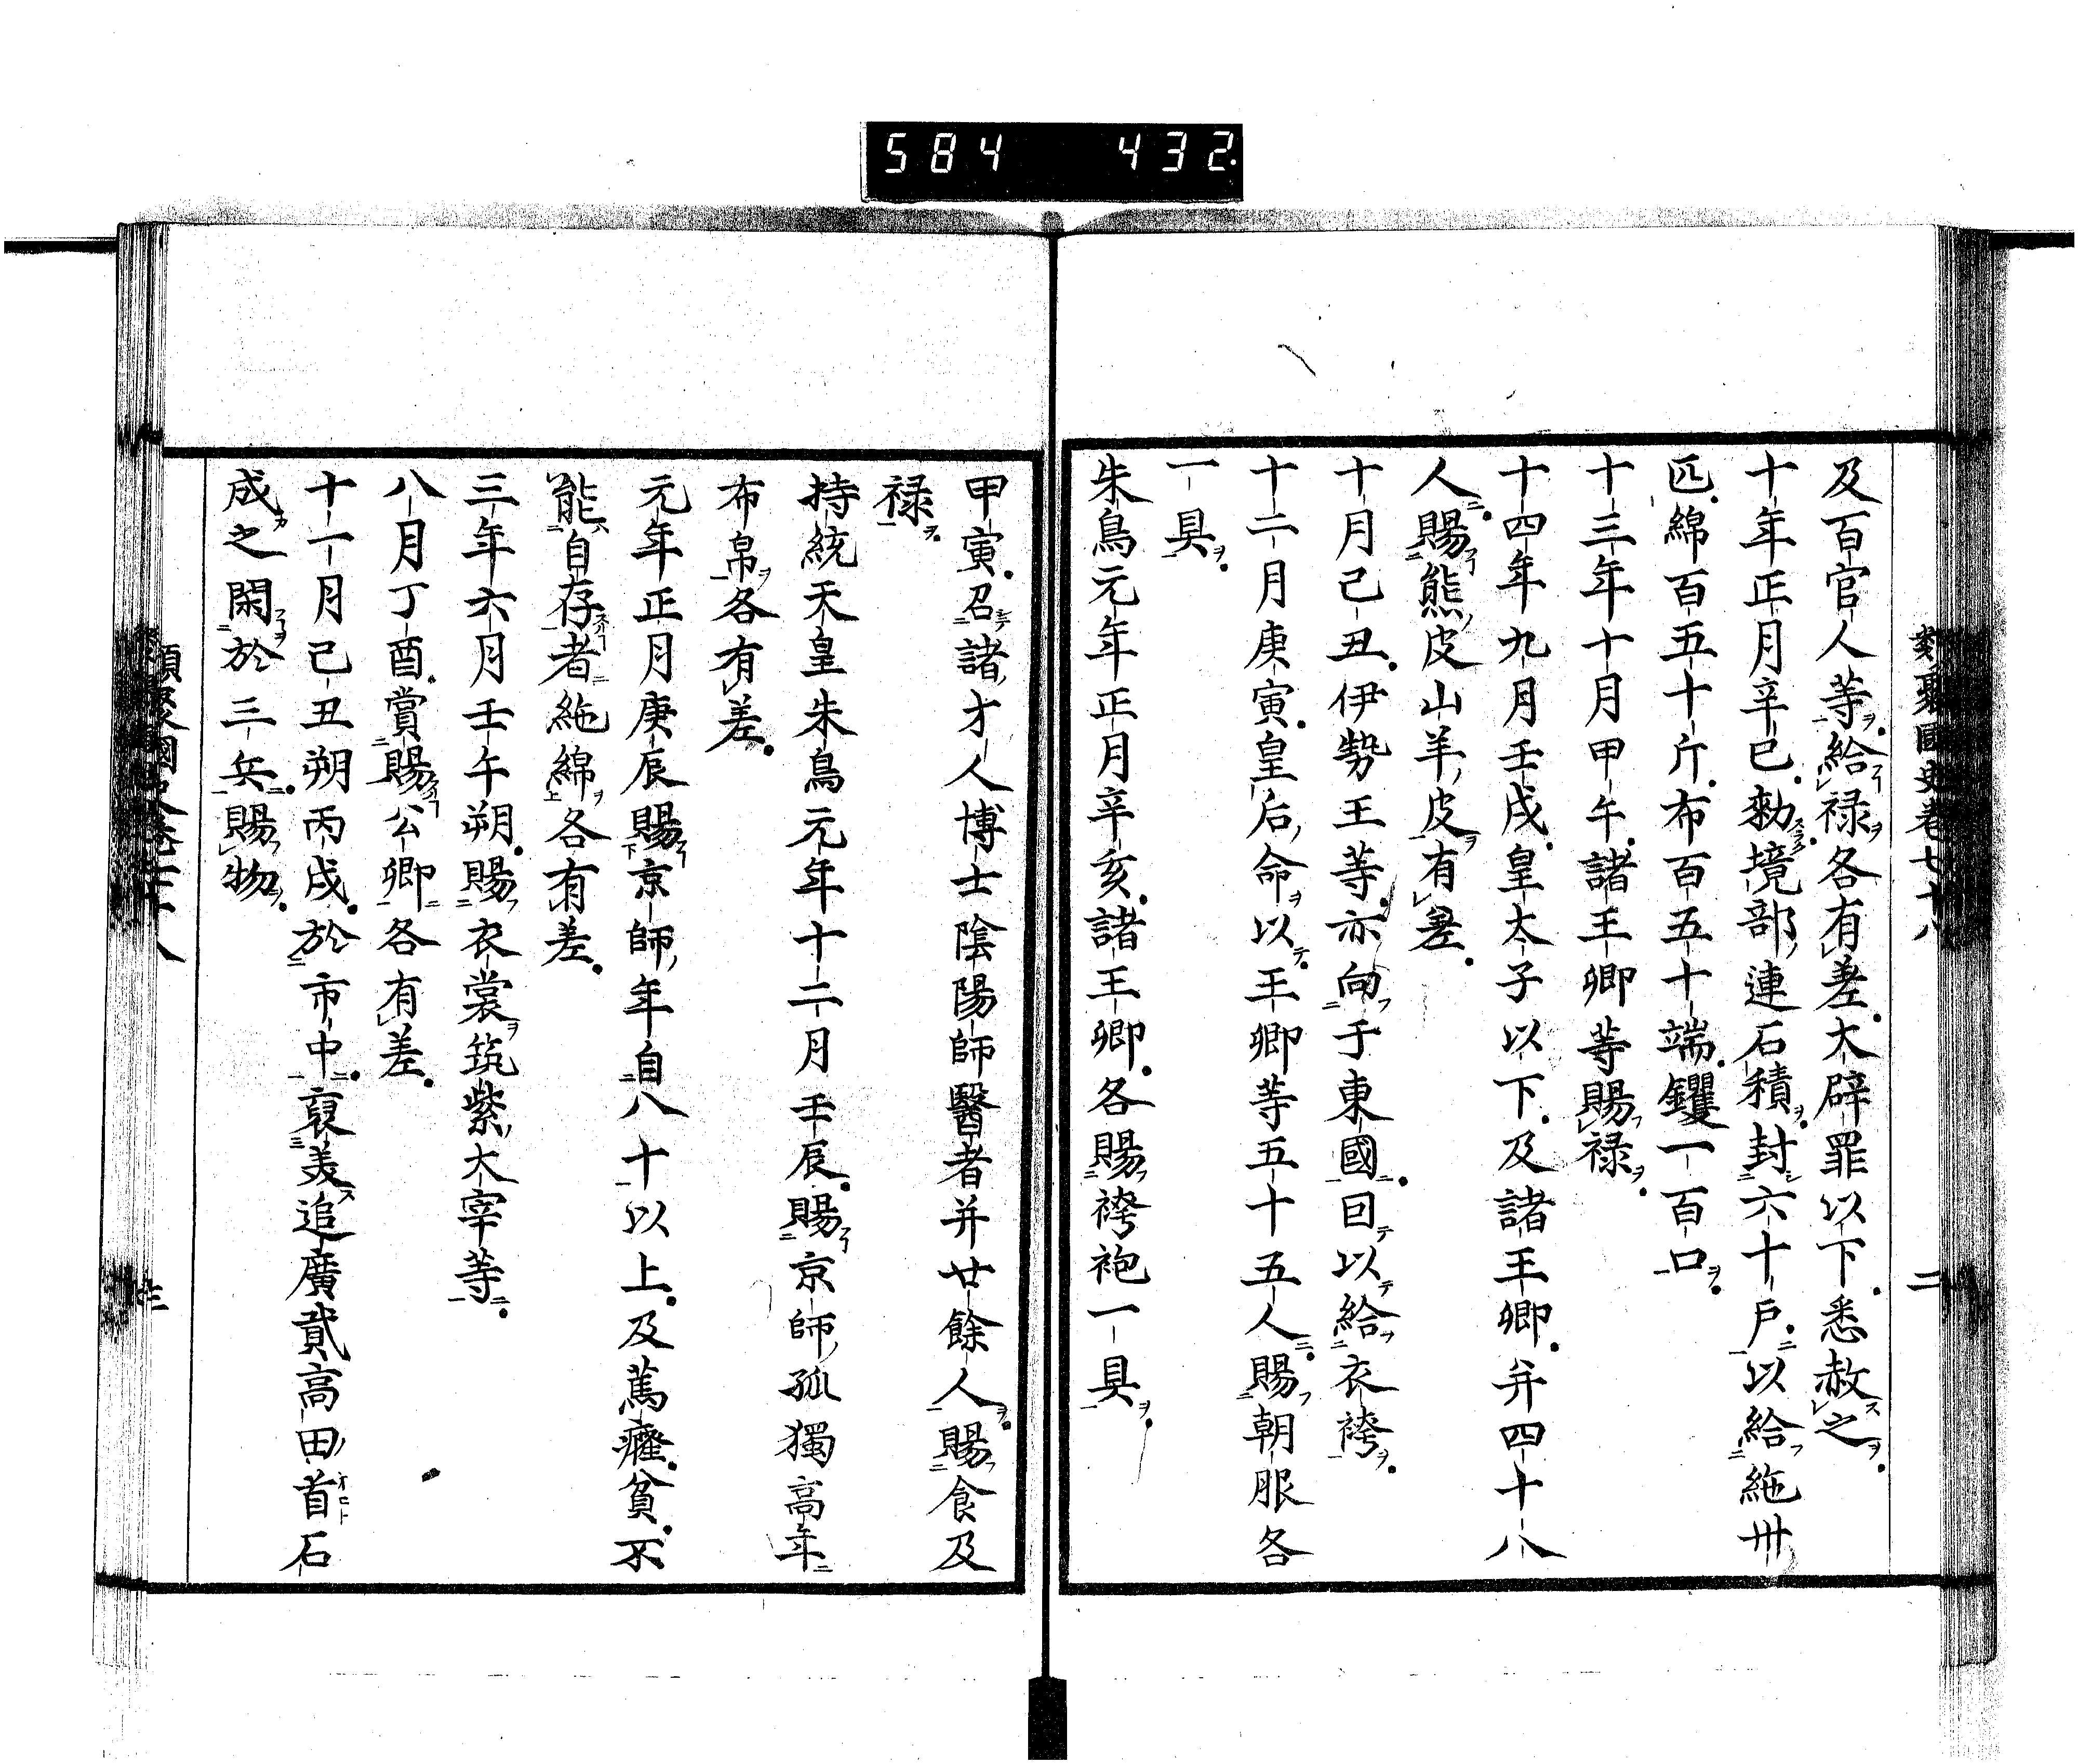 584 432
類聚國史卷七十八 二
及百官人等給禄各有差大辟罪以下悉赦之
十年正月辛巳勅境部連石積封六十戸以給絁卅
匹綿百五十斤布百五十端钁一百口
十三年十月甲午諸王卿等賜禄
十四年九月壬戌皇太子以下及諸王卿并四十八
人賜熊皮山羊皮有差
十月己丑伊勢王等亦向于東國因以給衣袴
十二月庚寅皇后命以王卿等五十五人賜朝服各
一具
朱鳥元年正月辛亥諸王卿各賜袴袍一具
甲寅召諸才人博士陰陽師醫者并廿餘人賜食及
禄
持統天皇朱鳥元年十二月壬辰賜京師孤獨高年
布帛各有差
元年正月庚辰賜京師年自八十以上及篤癃貧不
能自存者絁綿各有差
三年六月壬午朔賜衣裳筑紫大宰等
八月丁酉賞賜公卿各有差
十一月己丑朔丙戌於市中裒美追廣貳高田首石
成之閑於三兵賜物
類聚國史卷七十八 三